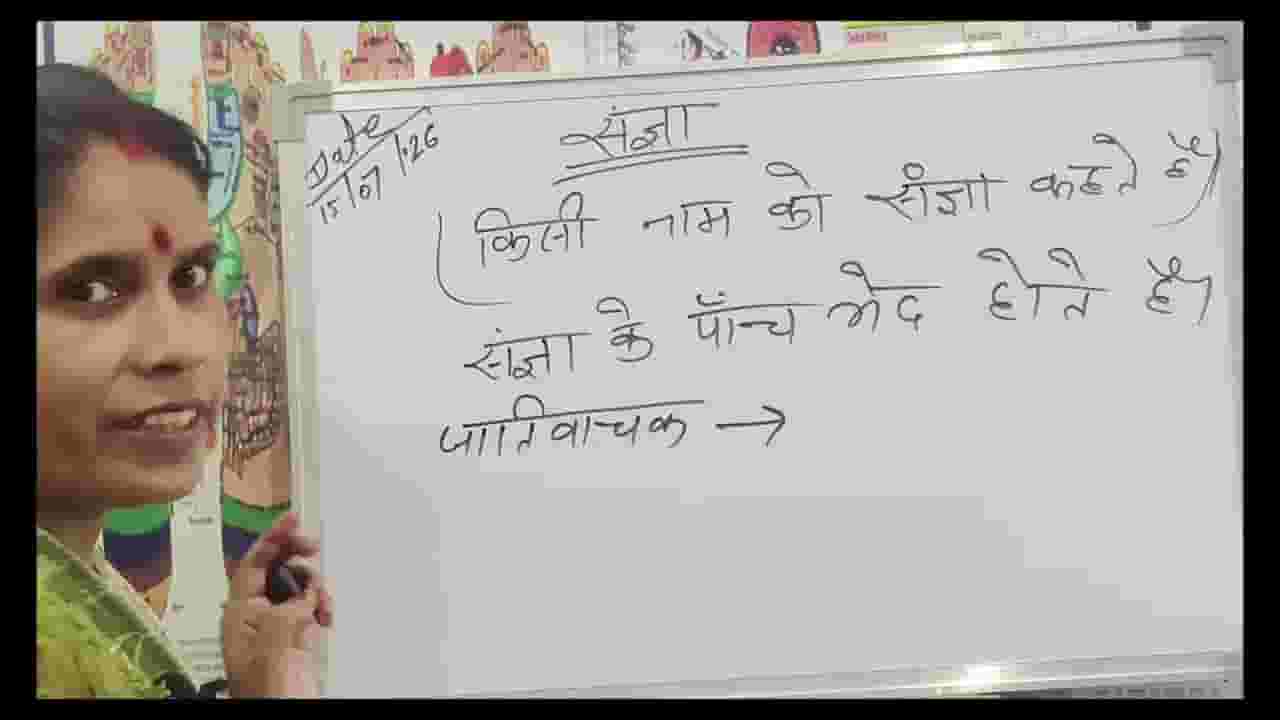 Date
15/07/26
संज्ञा
(किसी नाम को संज्ञा कहते हैं)
संज्ञा के पाँच भेद होते हैं।
जातिवाचक →